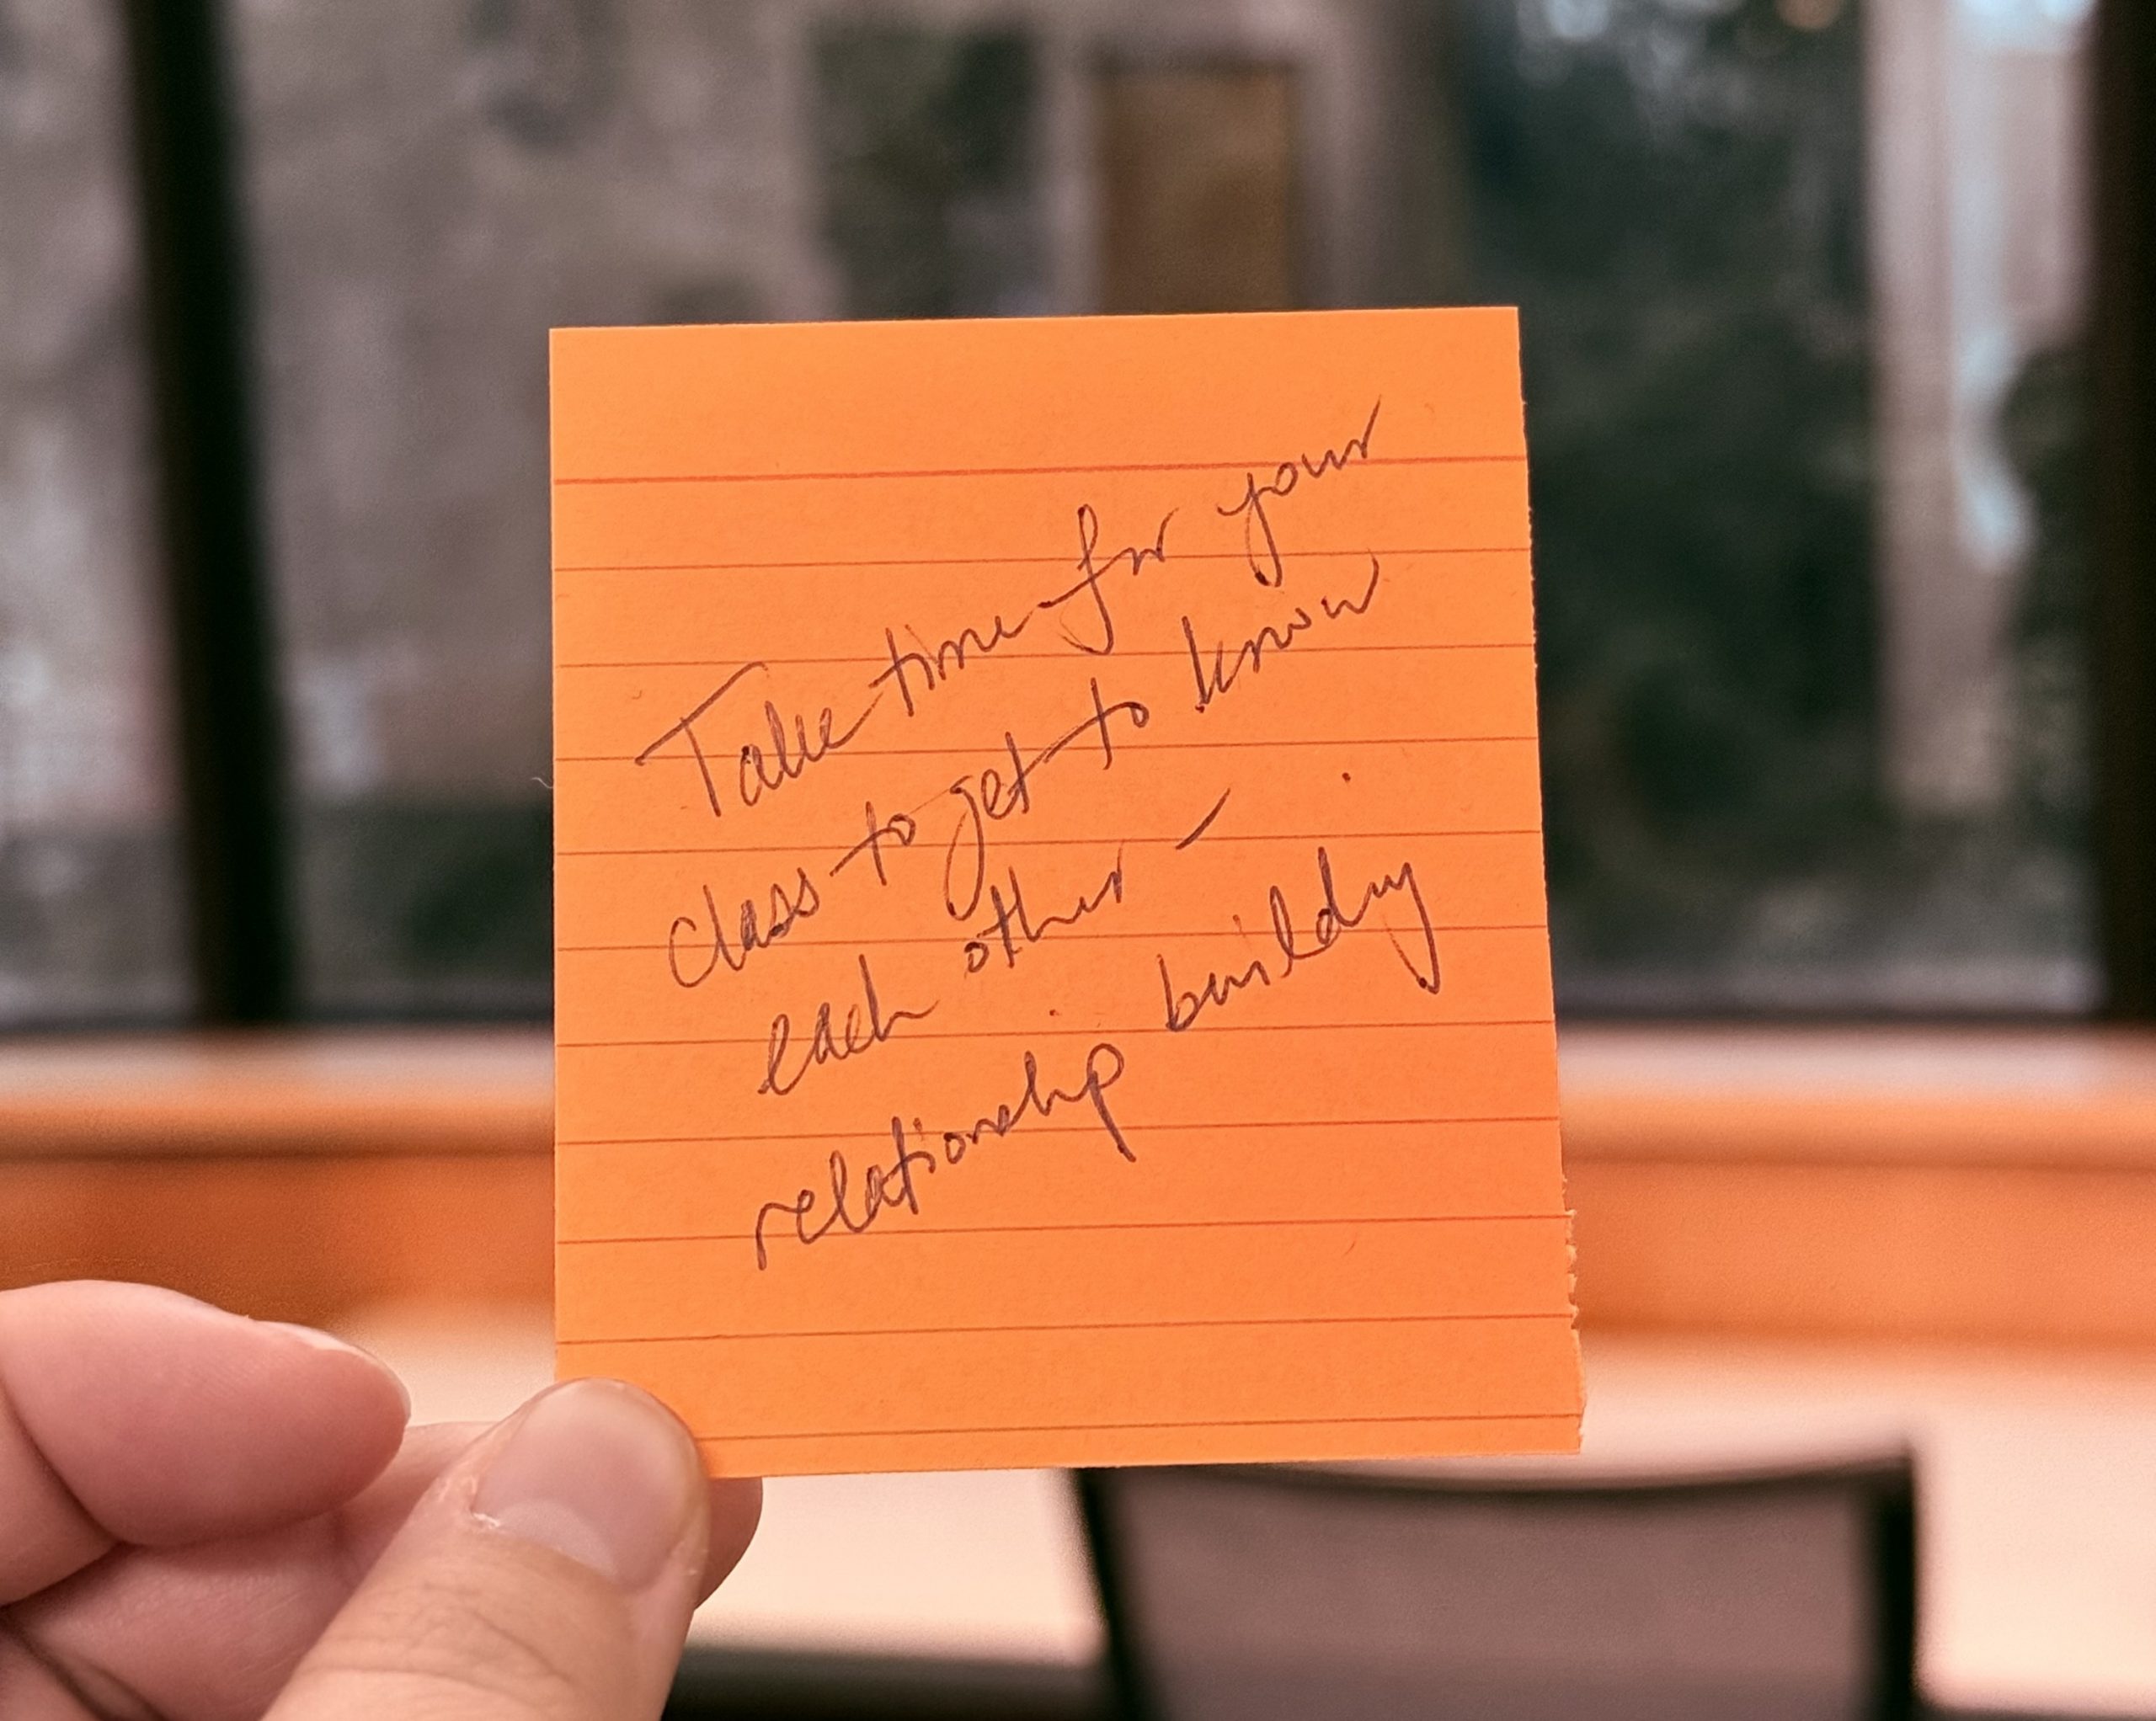 Take time for your
class to get to know
each other –
relationship building